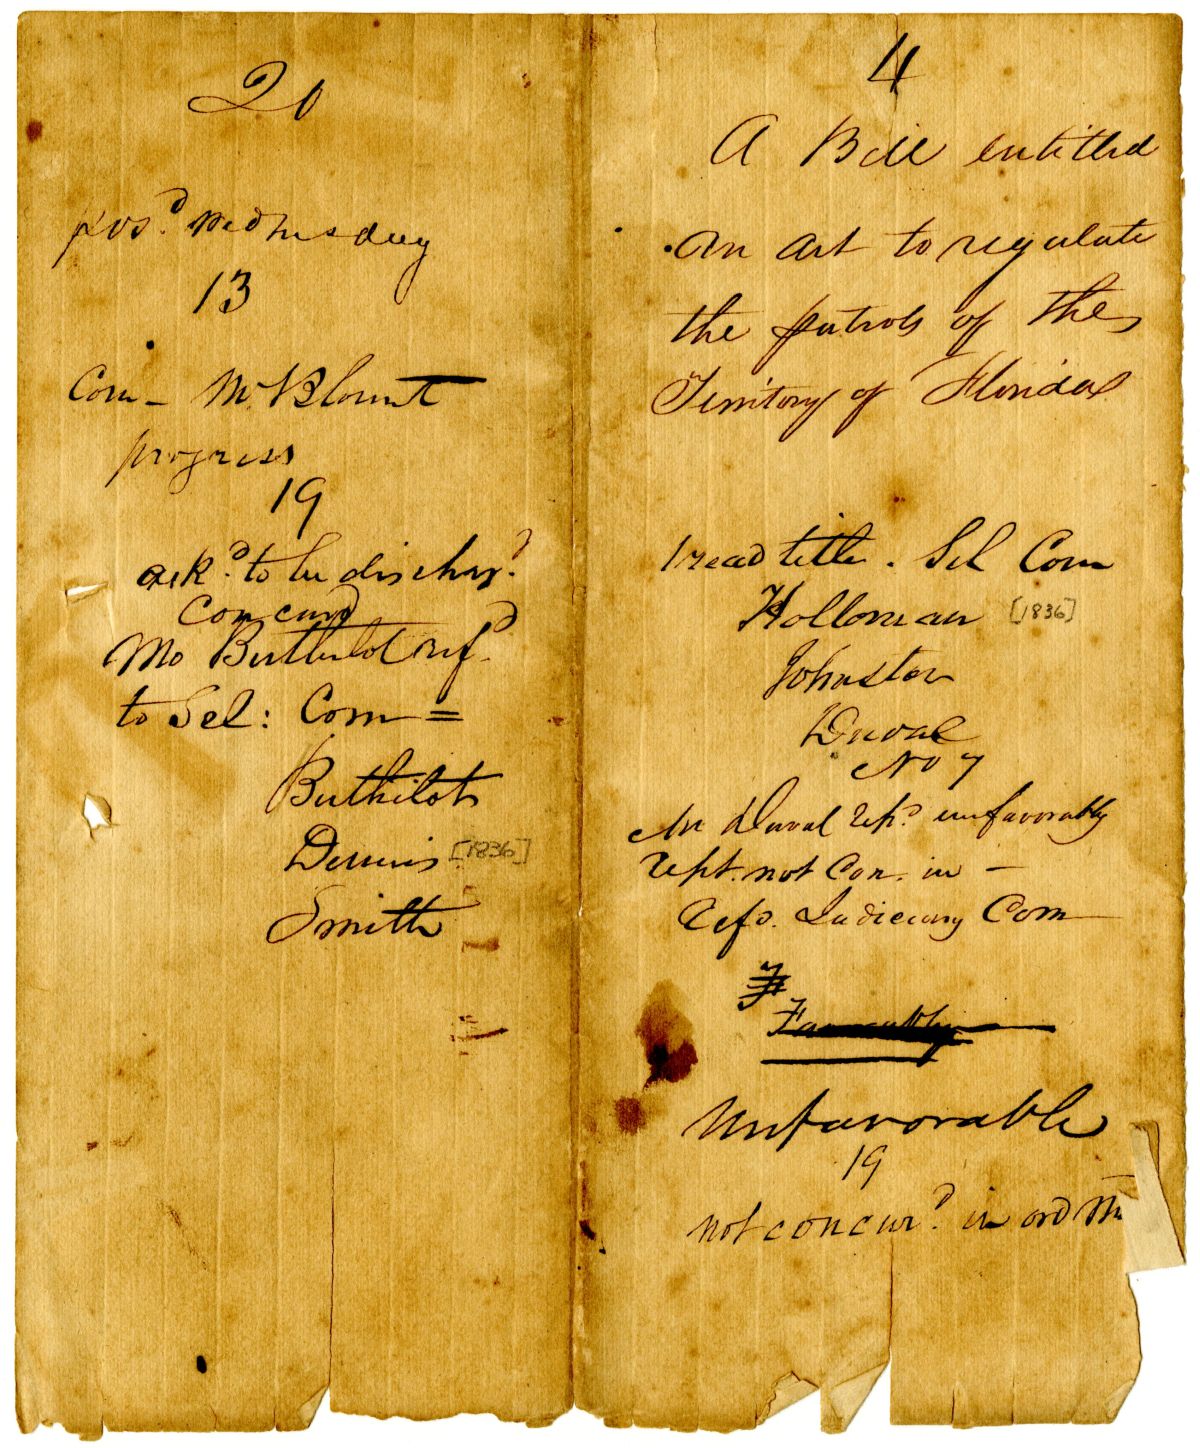 20
pos.d Wednesday
13
Com - Mr Blount
progress
19
ask.d to be dischar.d
Concurd
Mo Berthelot ref.d
to Sel: Com =
Berthelot
Dennis [1836]
Smith
4
A Bill entitled
an act to regulate
the patrols of the
Territory of Florida
1 read title. Sel Com
Holloman [1836]
Johnston
Duval
No 7
Mr Duval rep.d unfavorably
rept. not con. in -
Refd. Judiciary Com
F
Favorably
Unfavorable
19
not concur.d in ord